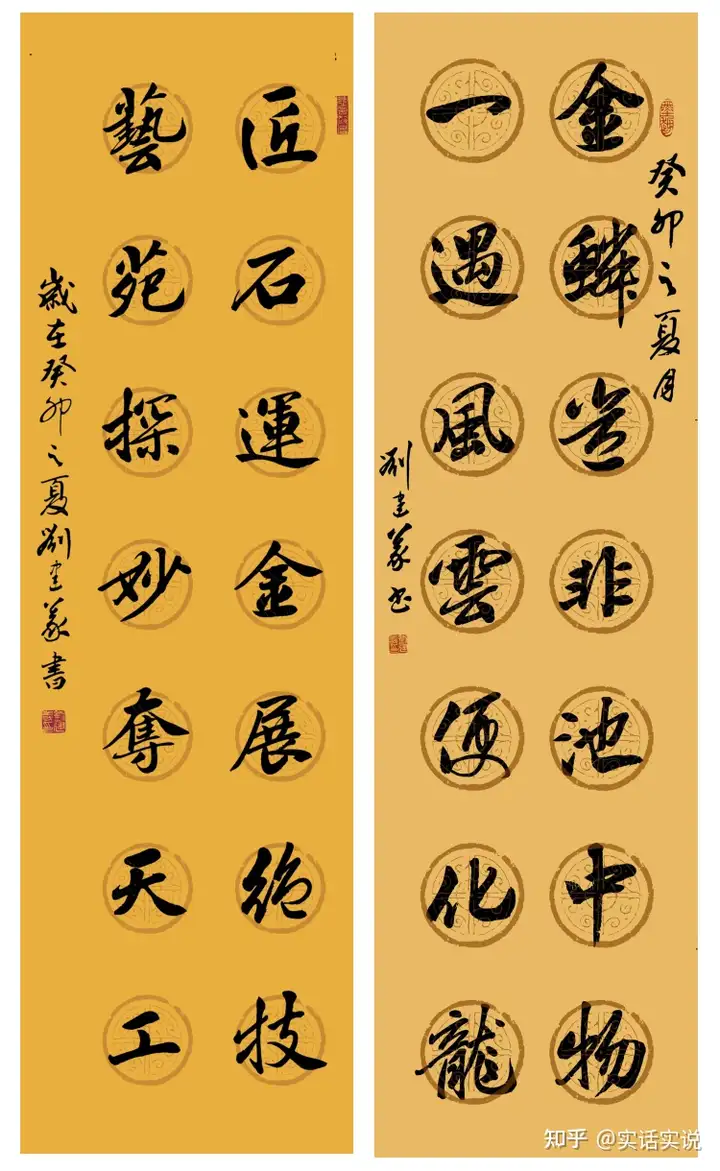 癸卯之夏月
金鱗豈非池中物
一遇風雲便化龍
劉建義书
匠石運金展絶技
藝苑探妙奪天工
歲在癸卯之夏劉建義書
知乎 @实话实说